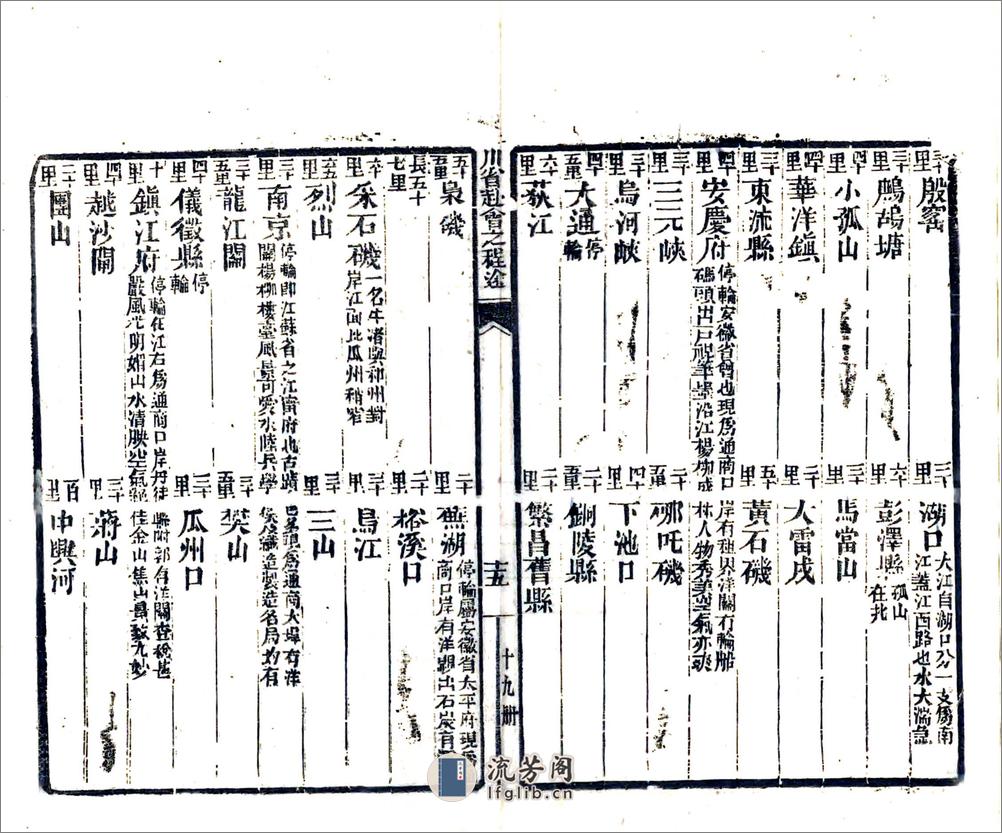 三十里 殷窰 三十里 湖口 大江自湖口分一支爲南江蓋江西路也水大湍急
四十里 鷓鴣塘 六十里 彭澤縣 孤山在北
四十里 小孤山 三十里 馬當山
四十里 華洋鎮 二十里 大雷戌
三十里 東流縣 五十里 黃石磯
四十里 安慶府 停輪安徽省會也現爲通商口岸有租界洋關有輪船
碼頭出戶視筆墨沿江楊柳成林人物秀美空氣亦爽
三十里 三元峽 二十五里 哪吒磯
三十里 烏河峽 四十里 下池口
四十五里 大通 停輪 二十五里 銅陵縣
六十里 荻江 二十里 繁昌舊縣
川省赴會之程途 十五 十九册
五十里 梟磯 二十里 蕪湖 停輪屬安徽省太平府現爲商口岸有洋關出石炭有
長五十七里 二十里 裕溪口
六十里 采石磯 一名牛渚與和州對岸江面比瓜州稍窄 三十里 烏江
五十里 烈山 三十里 三山
三十里 南京 停輪即江蘇省之江甯府也古蹟
關楊柳樓臺風景可愛水陸兵學
巴呈現爲通商大埠有洋
侯人織造製造名局均有
三十五里 龍江關 二十五里 焚山
四十里 儀徵縣 停輪 三十里 瓜州口
十里 鎮江府 停輪在江右爲通商口岸丹徒縣附郭有洋關查稅甚
嚴風光明媚山水清映空氣極佳金山焦山景致尤妙
四十里 越沙閘 三十里 蔣山
三十里 團山 百里 中興河
流芳阁
lfglib.cn